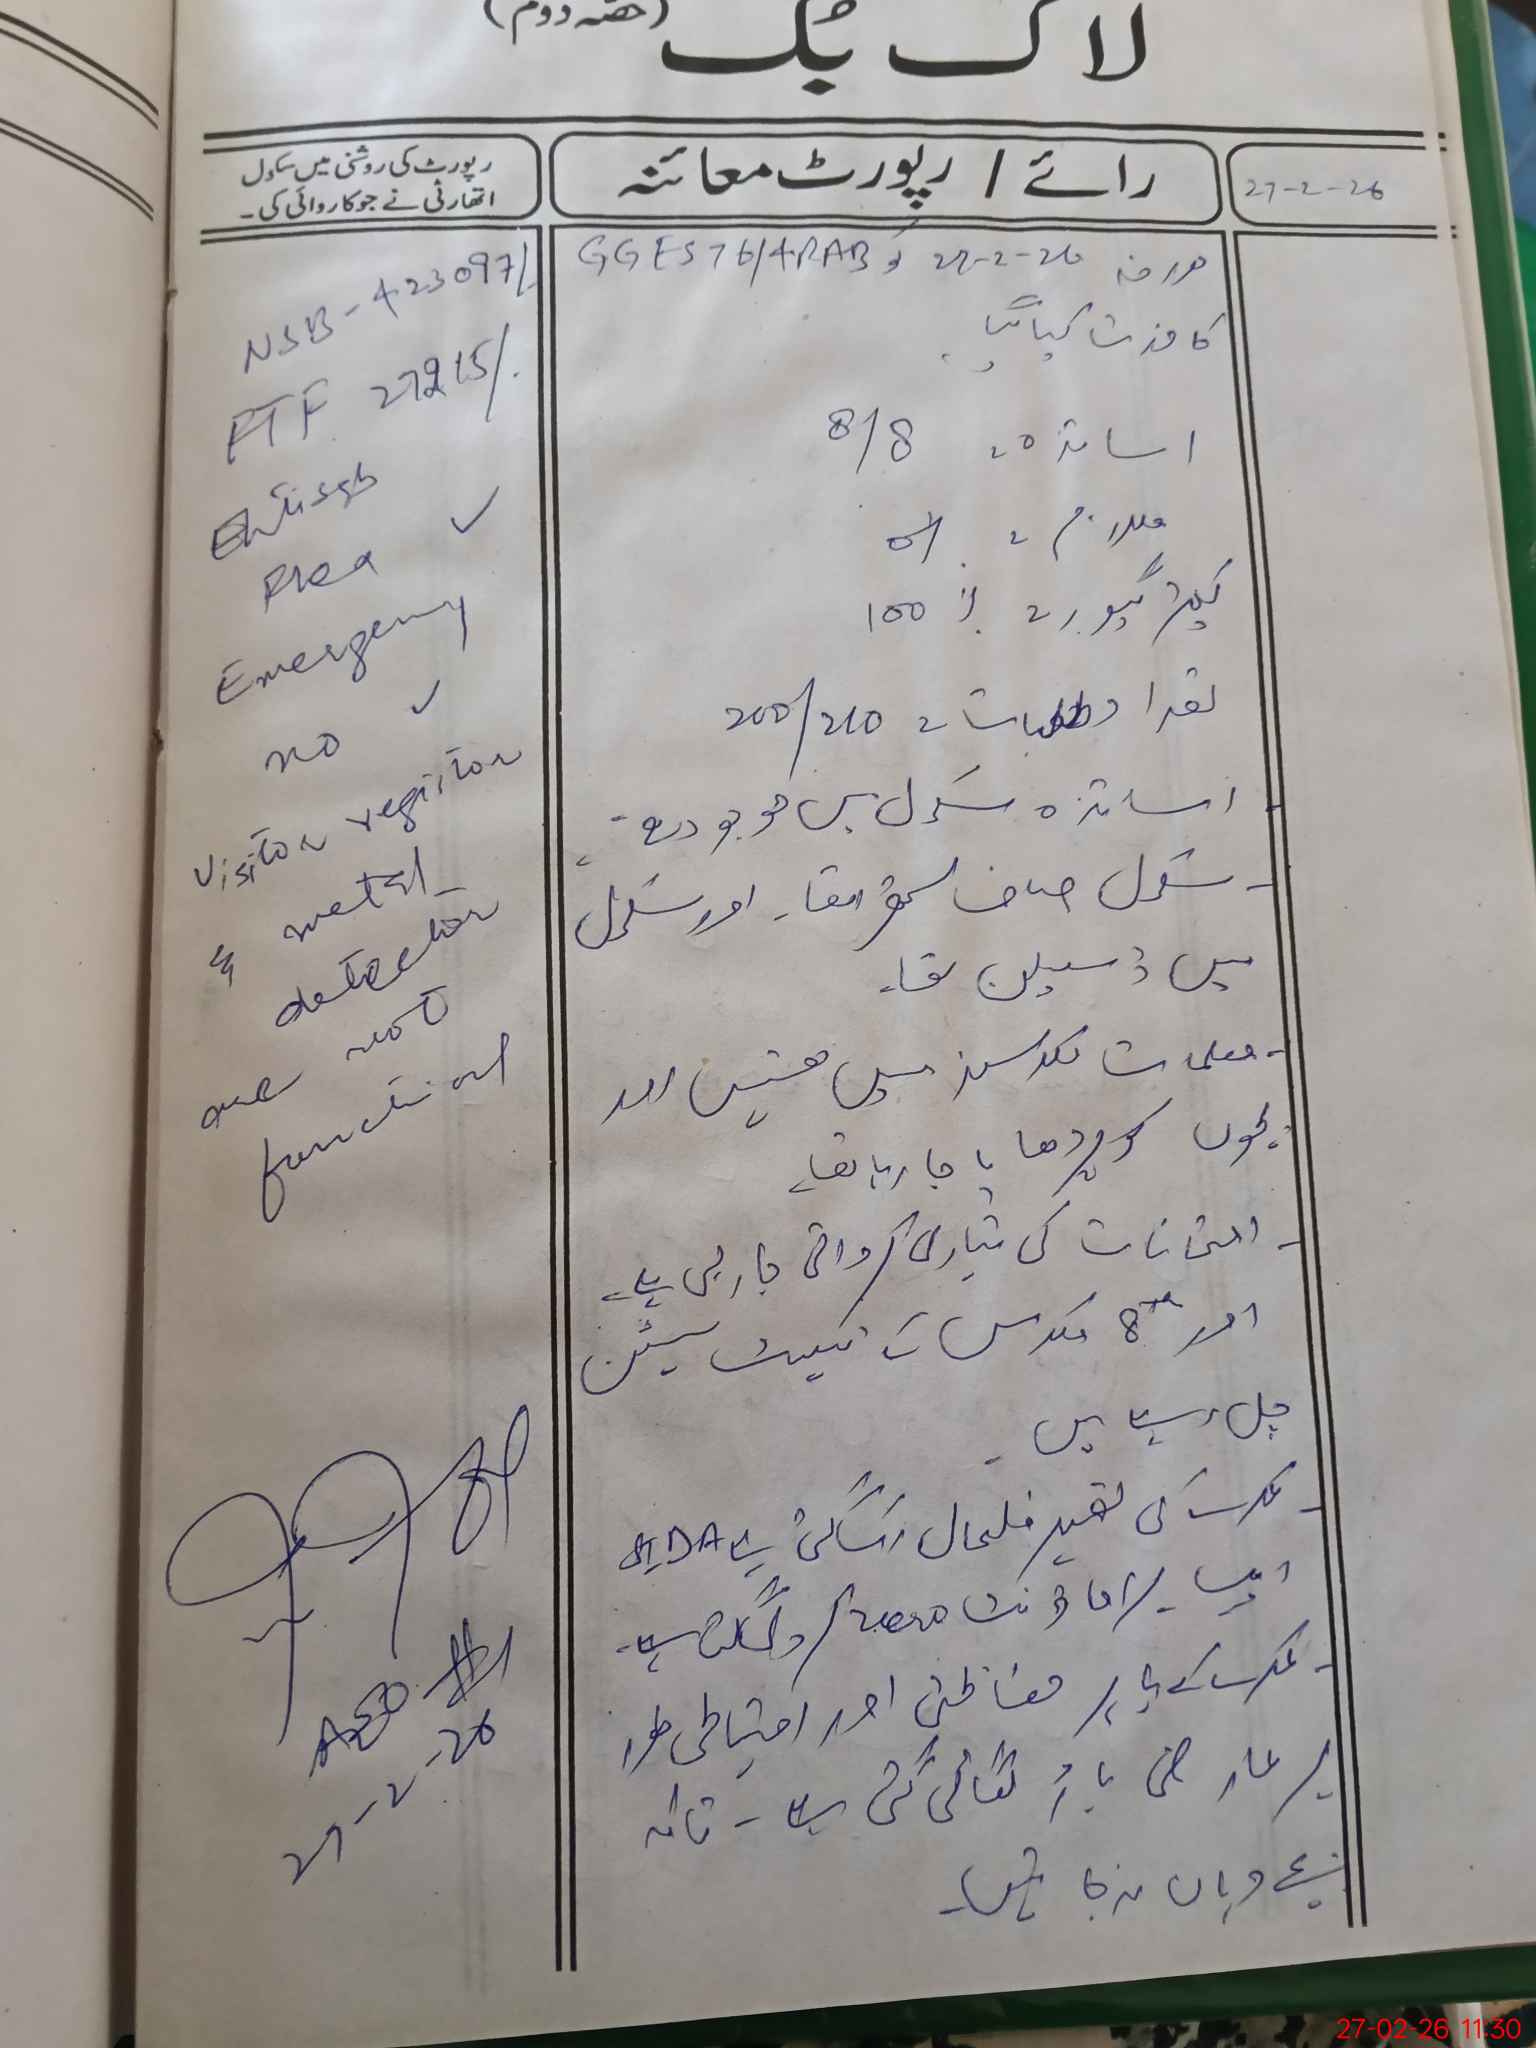 لاگ بک (حصہ دوم)
27-2-26
رائے / رپورٹ معائنہ
رپورٹ کی روشنی میں سکول
اتھارٹی نے جو کاروائی کی۔
مورخہ 27-2-26 کو GGES 76/4RAB
کا وزٹ کیا گیا۔
اساتذہ = 8/8
ملازم =
100 %
تعداد طالبات = 200/210
- اساتذہ سکول میں موجود تھے۔
- سکول صاف ستھرا تھا۔ اور سکول
میں ڈسپلن تھا۔
- معلمات کلاسز میں تھیں اور
بچوں کو پڑھایا جا رہا تھا۔
- امتحانات کی تیاری کروائی جا رہی ہے۔
اور 8th کلاس کے ٹیسٹ سیشن
چل رہے ہیں۔
- عمارت کی تعمیر فلحال رک گئی ہے
اماؤنٹ zero کر دی گئی ہے۔
- عمارت کے باہر حفاظتی اور احتیاطی طور
پر عارضی باڑ لگائی گئی ہے - تاکہ
بچے وہاں نہ جا سکیں۔
NSB - 423097/-
FTF 27215/.
Plea ✓
Emergency
no ✓
visitor register
& metal
detector
are not
functional
AEO
27-2-26
27-02-26 11:30